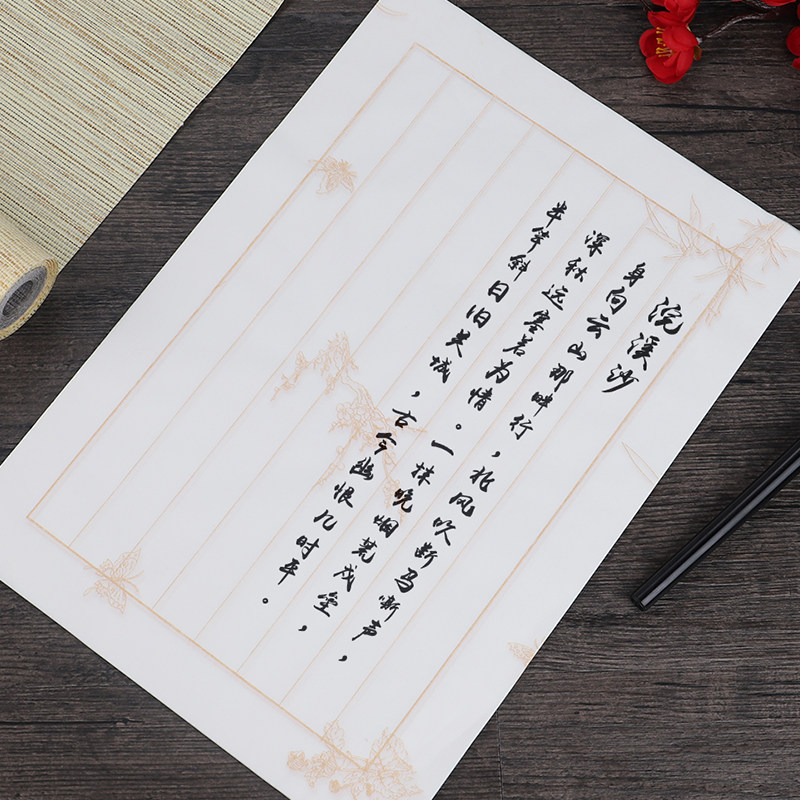 浣溪沙
身向云山那畔行，北风吹断马嘶声，
深秋远塞若为情。一抹晚烟荒戍垒，
半竿斜日旧关城，古今幽恨几时平。